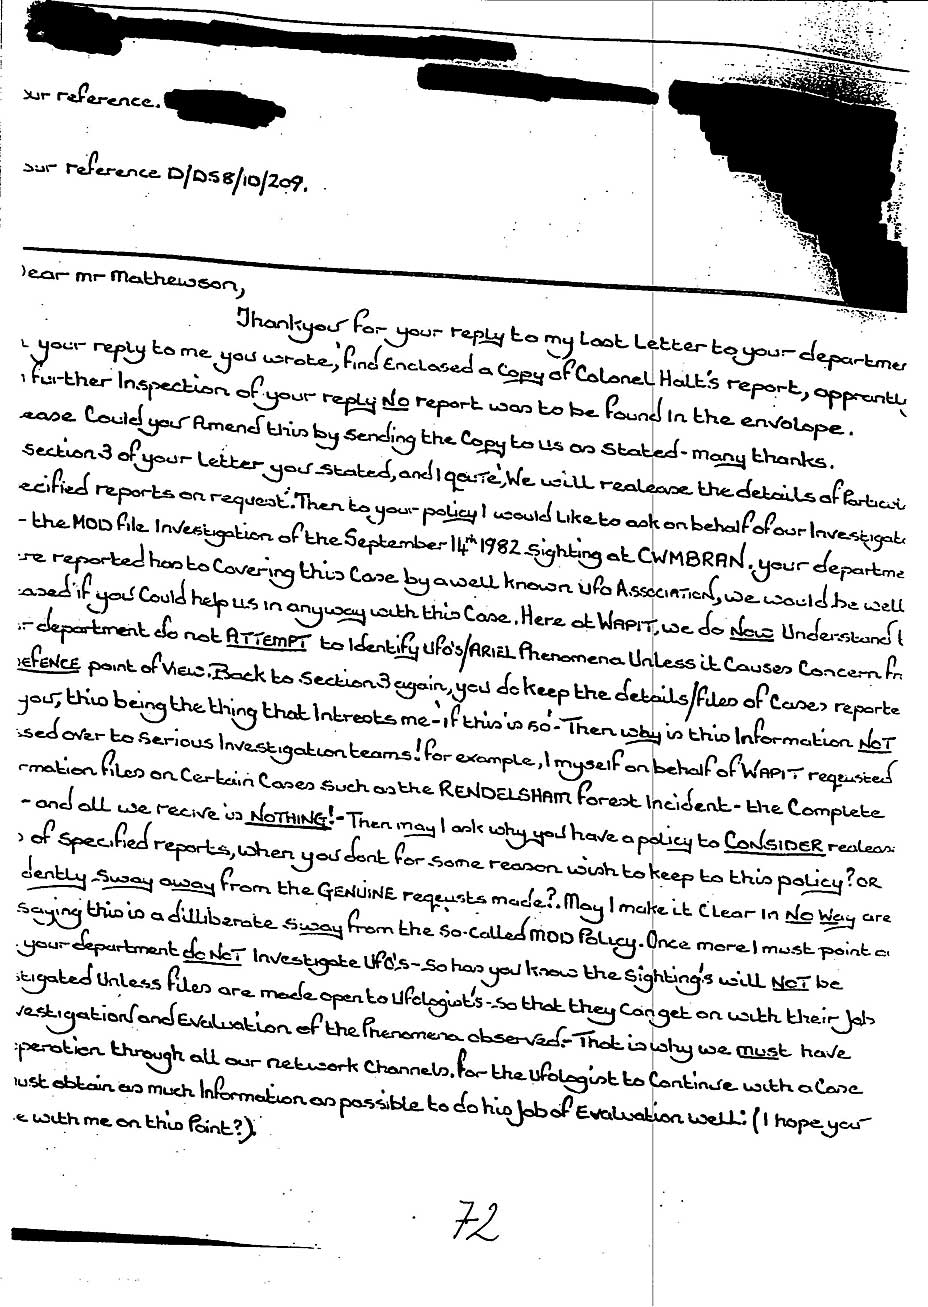 ur reference.
our reference D/DS8/10/209.
Dear mr Mathewson,
Thankyou for your reply to my Last Letter to your departmen
your reply to me you wrote, 'find Enclosed a Copy of Colonel Halt's report, apprantl
further Inspection of your reply No report was to be found in the envolope.
ease Could you Amend this by sending the Copy to us as Stated - many thanks.
Section 3 of your Letter you stated, and I qoute', We will realease the details of Particul
ecified reports on request'. Then to your policy I would Like to ask on behalf of our Investigat
- the MOD file Investigation of the September 14th 1982 sighting at CWMBRAN. your departme
re reported has to Covering this Case by a well known ufo Association, we would be well
ased if you Could help us in anyway with this Case. Here at WAPIT, we do Now Understand t
r department do not ATTEMPT to Identify ufo's/ARIEL Phenomena Unless it Causes Concern fr
DEFENCE point of View. Back to Section 3 again, you do keep the details/files of Cases reporte
you, this being the thing that Intrests me - 'if this is so' - Then why is this Information NOT
ssed over to Serious Investigation teams! for example, I myself on behalf of WAPIT reqeusted
rmation files on Certain Cases Such as the RENDELSHAM forest Incident - the Complete
- and all we recive is NOTHING! - Then may I ask why you have a policy to CONSIDER realeas
of Specified reports, when you dont for some reason wish to keep to this policy? OR
dently Sway away from the GENUINE reqeusts made?. May I make it Clear In No Way are
saying this is a dilliberate Sway from the So-Called MOD Policy. Once more I must point o
your department do NOT Investigate Ufo's - So has you know the Sighting's will NOT be
stigated Unless files are made open to Ufologist's - so that they Can get on with their Job
vestigation and Evaluation of the Phenomena observed. - That is why we must have
peration through all our network Channels. for the ufologist to Continue with a Case
ust obtain as much Information as possible to do his Job of Evaluation well: (I hope you
e with me on this Point?).
72